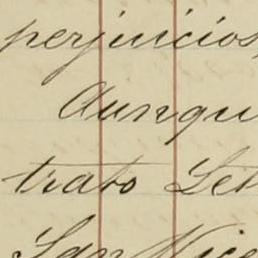 perjuicios,
Aunqu
trato Let
San Nice